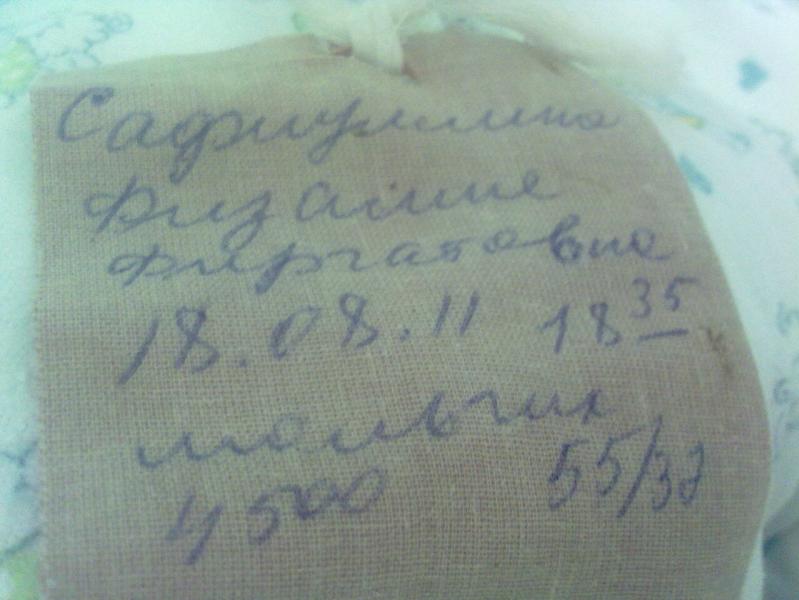 Сафиуллина
Физалие
Фиргатовна
18.08.11 18 35
мальчик
4500 55/37